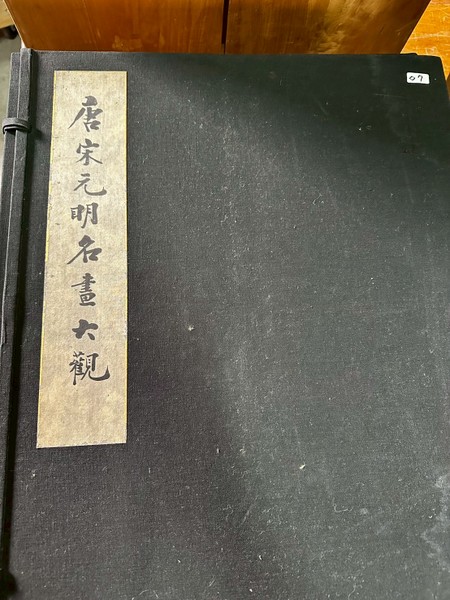 唐宋元明名畫大觀
07